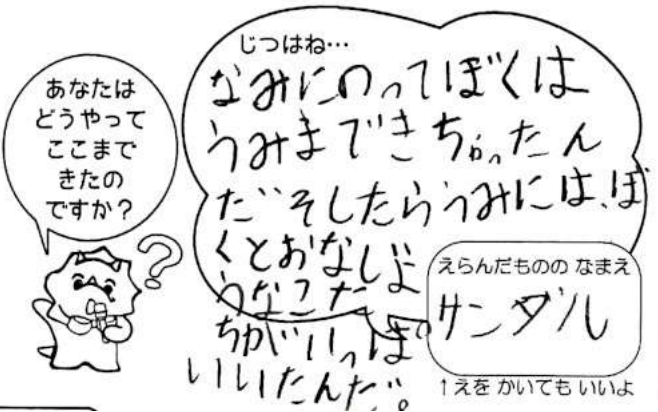 あなたは
どうやって
ここまで
きたの
ですか?
じつはね…
なみにのってぼくは
うみまできちゃったん
だ そしたらうみには、ぼ
くとおなじよ
うなこた
ちがいっぱ
いいたんだ。
えらんだものの なまえ
サンダル
↑えを かいても いいよ